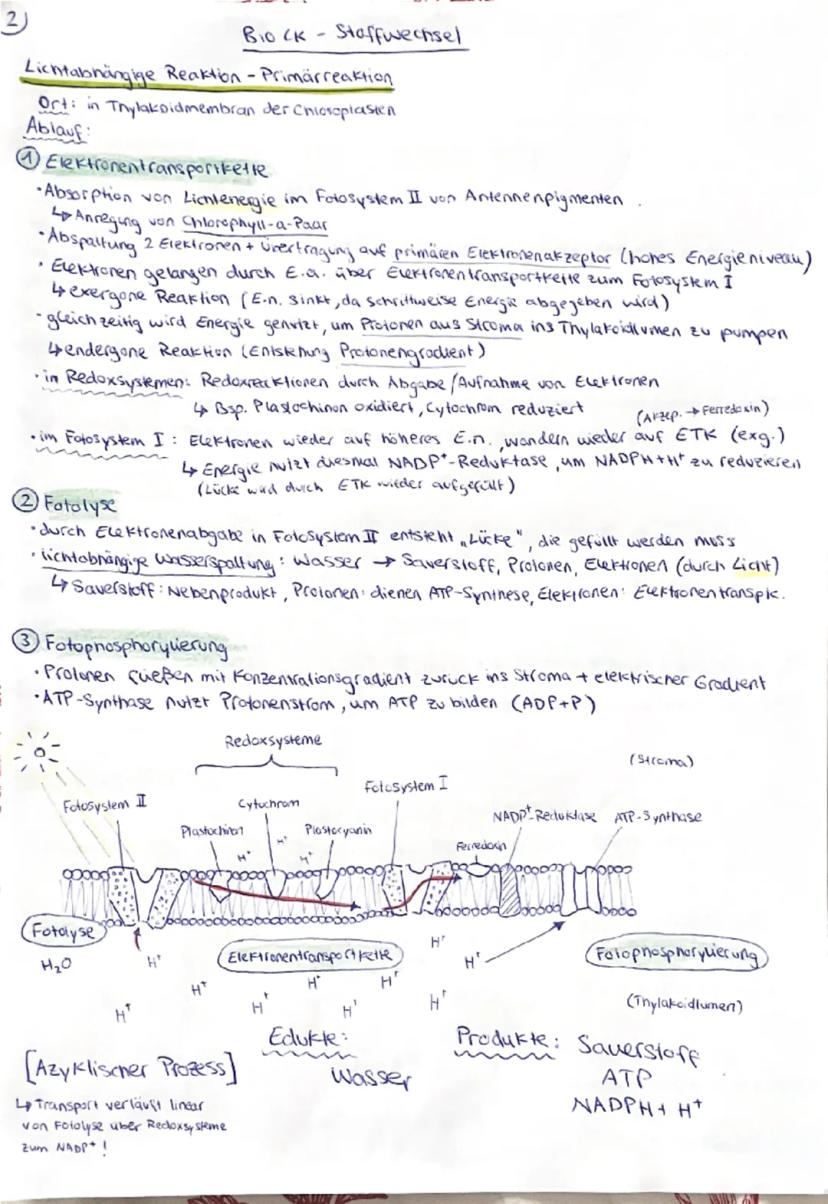 2
Bio LK - Stoffwechsel
Lichtabhängige Reaktion - Primärreaktion
Ort: in Thylakoidmembran der Chloroplasten
Ablauf:
① Elektronentransportkette
• Absorption von Lichtenergie im Fotosystem II von Antennenpigmenten.
↳ Anregung von Chlorophyll-a-Paar
• Abspaltung 2 Elektronen + Übertragung auf primären Elektronenakzeptor (hohes Energieniveau)
• Elektronen gelangen durch E.a. über Elektronentransportkette zum Fotosystem I
↳ exergone Reaktion (E.n. sinkt, da schrittweise Energie abgegeben wird)
• gleichzeitig wird Energie genutzt, um Protonen aus Stroma ins Thylakoidlumen zu pumpen
↳ endergone Reaktion (Entstehung Protonengradient)
• in Redoxsystemen: Redoxreaktionen durch Abgabe/Aufnahme von Elektronen
↳ Bsp. Plastochinon oxidiert, Cytochrom reduziert
(Akzep. → Ferredoxin)
• im Fotosystem I: Elektronen wieder auf höheres E.n., wandern wieder auf ETK (exg.)
↳ Energie nutzt diesmal NADP⁺-Reduktase, um NADPH+H⁺ zu reduzieren
(Lücke wird durch ETK wieder aufgefüllt)
② Fotolyse
• durch Elektronenabgabe in Fotosystem II entsteht „Lücke", die gefüllt werden muss
• lichtabhängige Wasserspaltung: Wasser → Sauerstoff, Protonen, Elektronen (durch Licht)
↳ Sauerstoff: Nebenprodukt, Protonen: dienen ATP-Synthese, Elektronen: Elektronentranspk.
③ Fotophosphorylierung
• Protonen fließen mit Konzentrationsgradient zurück ins Stroma + elektrischer Gradient
• ATP-Synthase nutzt Protonenstrom, um ATP zu bilden (ADP+P)
Redoxsysteme
(Stroma)
Fotosystem I
Fotosystem II
Cytochrom
NADP⁺-Reduktase ATP-Synthase
Plastochinon
H⁺
Plastocyanin
H⁺
H⁺
Ferredoxin
Fotolyse
H₂O
H⁺
Elektronentransportkette
H⁺
H⁺
Fotophosphorylierung
H⁺
H⁺
H⁺
H⁺
H⁺
H⁺
H⁺
(Thylakoidlumen)
Edukte:
Wasser
Produkte: Sauerstoff
ATP
NADPH + H⁺
[Azyklischer Prozess]
↳ Transport verläuft linear
von Fotolyse über Redoxsysteme
zum NADP⁺!